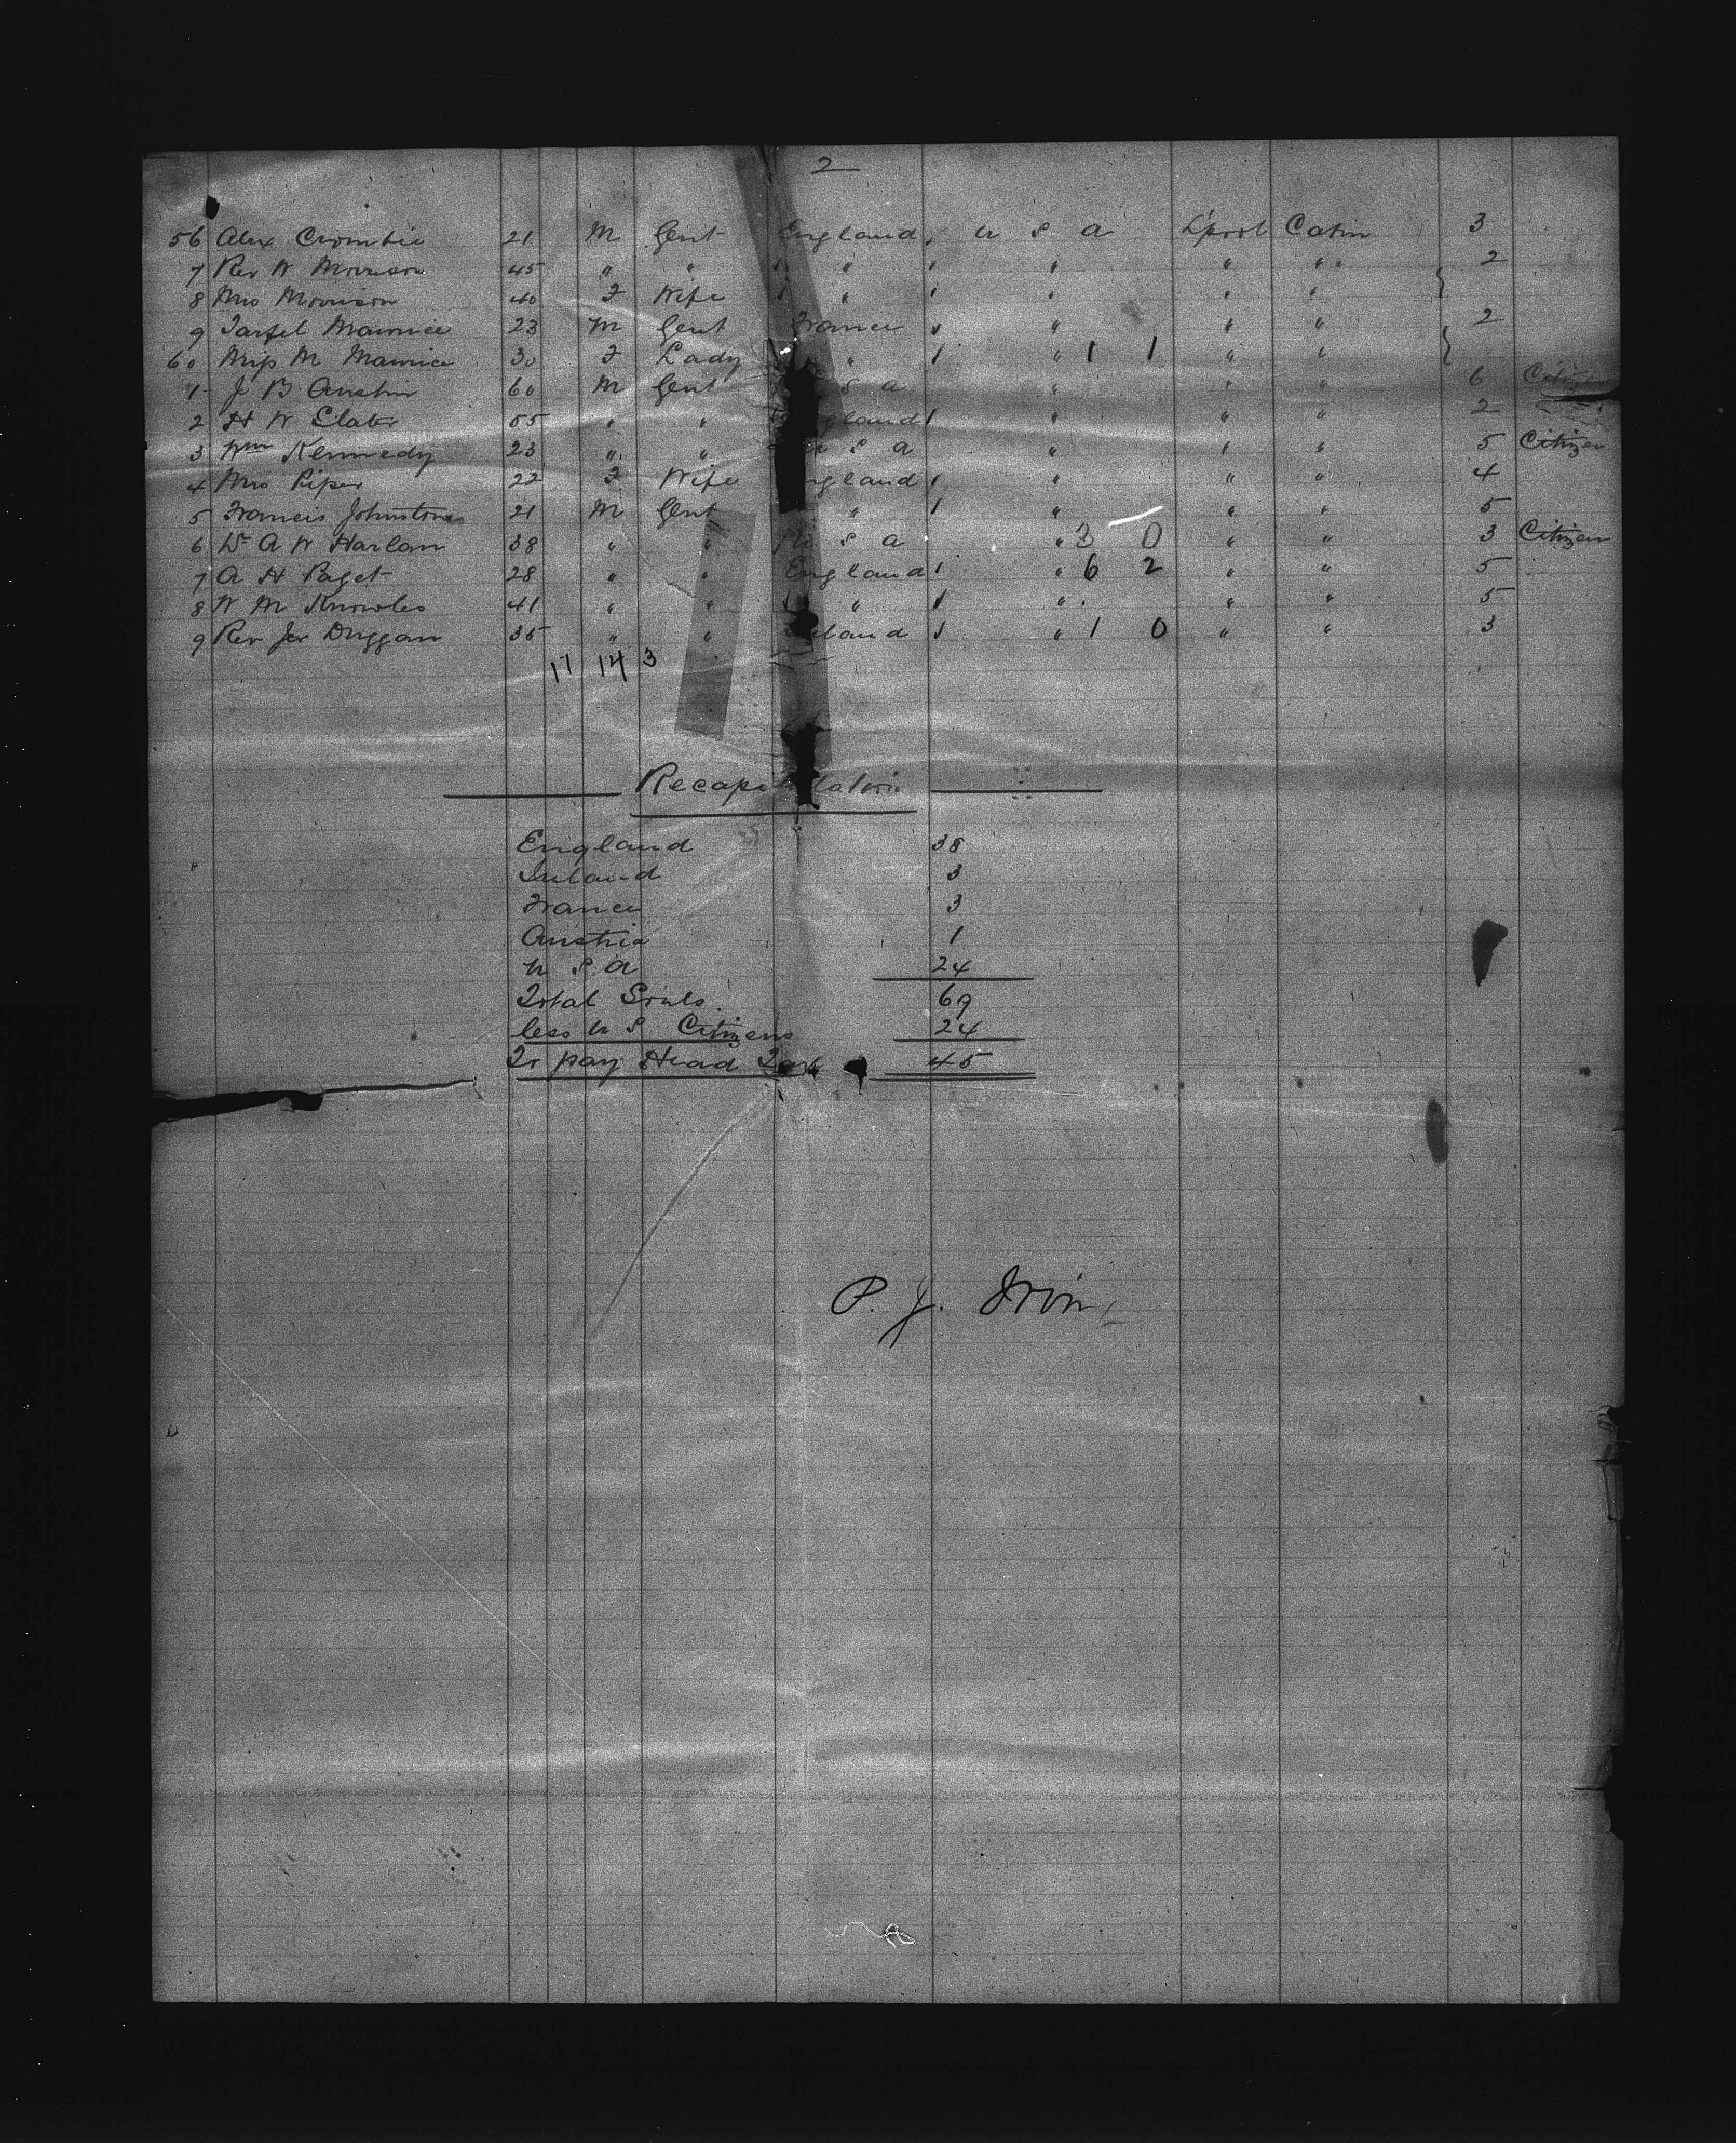 2
56 Alex Crombie 21 M Gent England, U S A L'pool Cabin 3
7 Rev W Morrison 45 " " " " " " 2
8 Mrs Morrison 40 F Wife " " " "
9 Maurice 23 M Gent France " " " 2
60 Miss M Maurice 30 F Lady " " 1 1 " "
1 J B Austin 60 M Gent S A " " " 6
2 H W Slater 55 " " gland " " " 2
3 Wm Kennedy 23 " " U S A " " " 5 Citizen
4 Mrs Piper 22 F Wife ngland " " " 4
5 Francis Johnstone 21 M Gent " " " " 5
6 Dr A W Harlan 38 " " U S A " 3 0 " " 3 Citizen
7 A H Paget 28 " " England " 6 2 " " 5
8 W M Knowles 41 " " " " " " 5
9 Rev Jer Duggan 35 " " eland " 1 0 " " 3
11 14 3
Recapitulation
England 38
Ireland 3
France 3
Austria 1
U S A 24
Total Souls 69
less U S Citizens 24
To pay Head Tax 45
P. J. Irvin